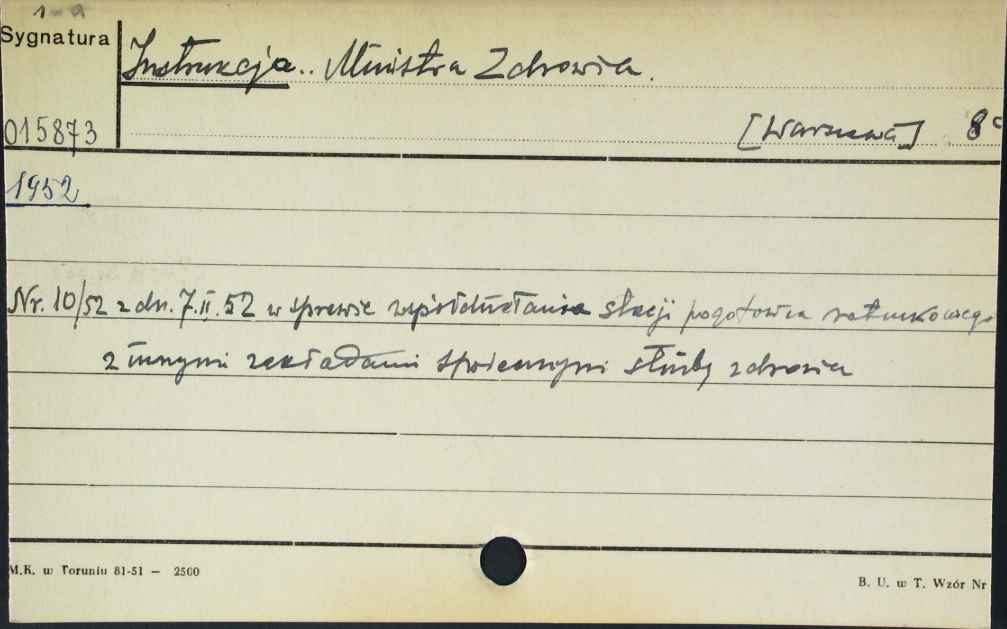 1-a
Sygnatura
Instrukcja.. Ministra Zdrowia.
015873
[Warszawa] 8°
1952
Nr. 10/52 z dn. 7.II.52 w sprawie współdziałania stacji pogotowia ratunkowego
z innymi zakładami społecznymi służby zdrowia
M.K. w Toruniu 81-51 — 2500
B. U. w T. Wzór Nr